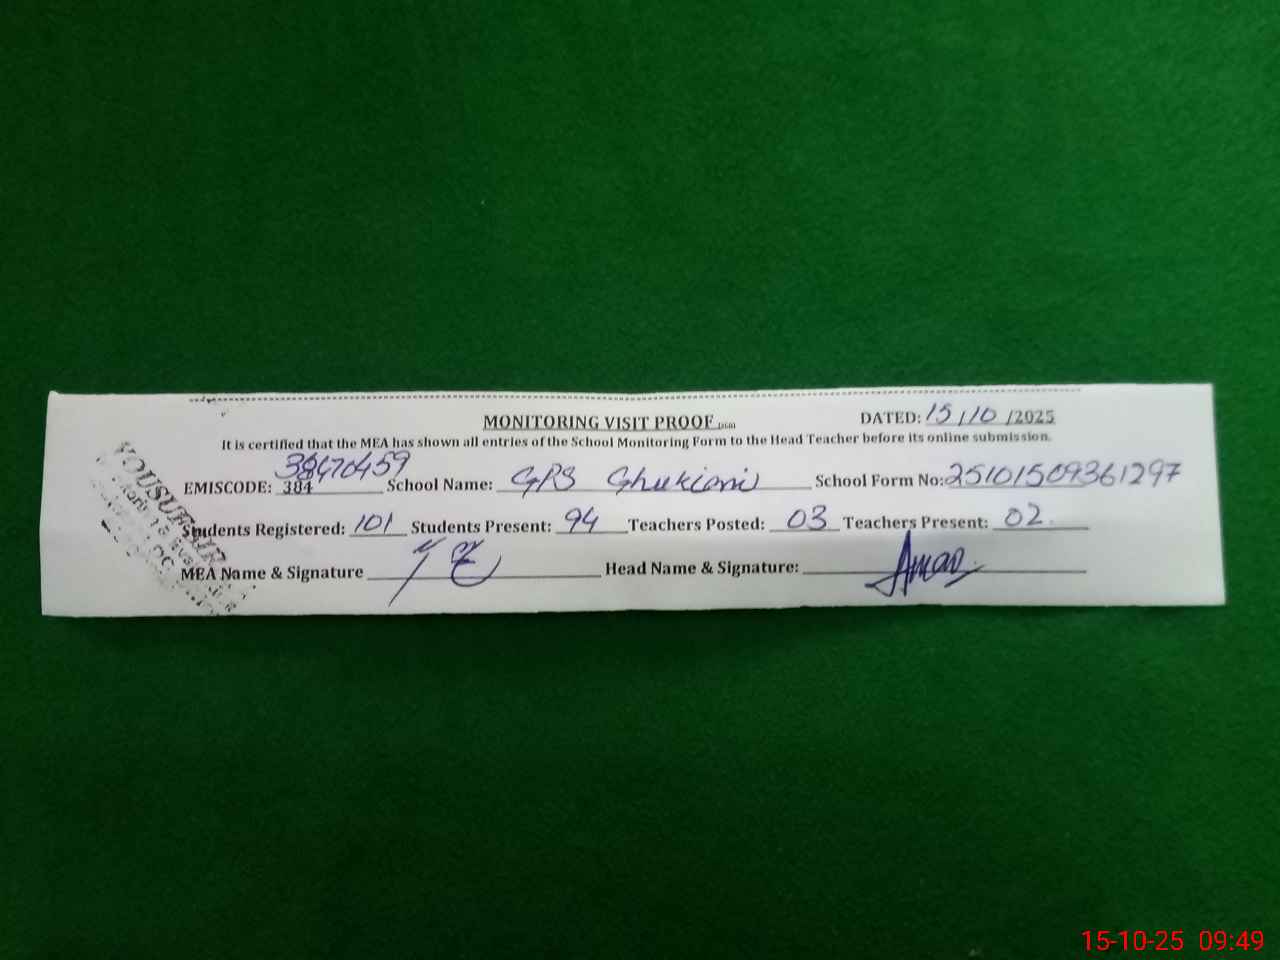 MONITORING VISIT PROOF DATED: 15/10/2025
It is certified that the MEA has shown all entries of the School Monitoring Form to the Head Teacher before its online submission.
38470459
EMISCODE: 384 School Name: GPS Ghukiani School Form No: 25101509361297
Students Registered: 101 Students Present: 94 Teachers Posted: 03 Teachers Present: 02
MEA Name & Signature Head Name & Signature:
15-10-25 09:49